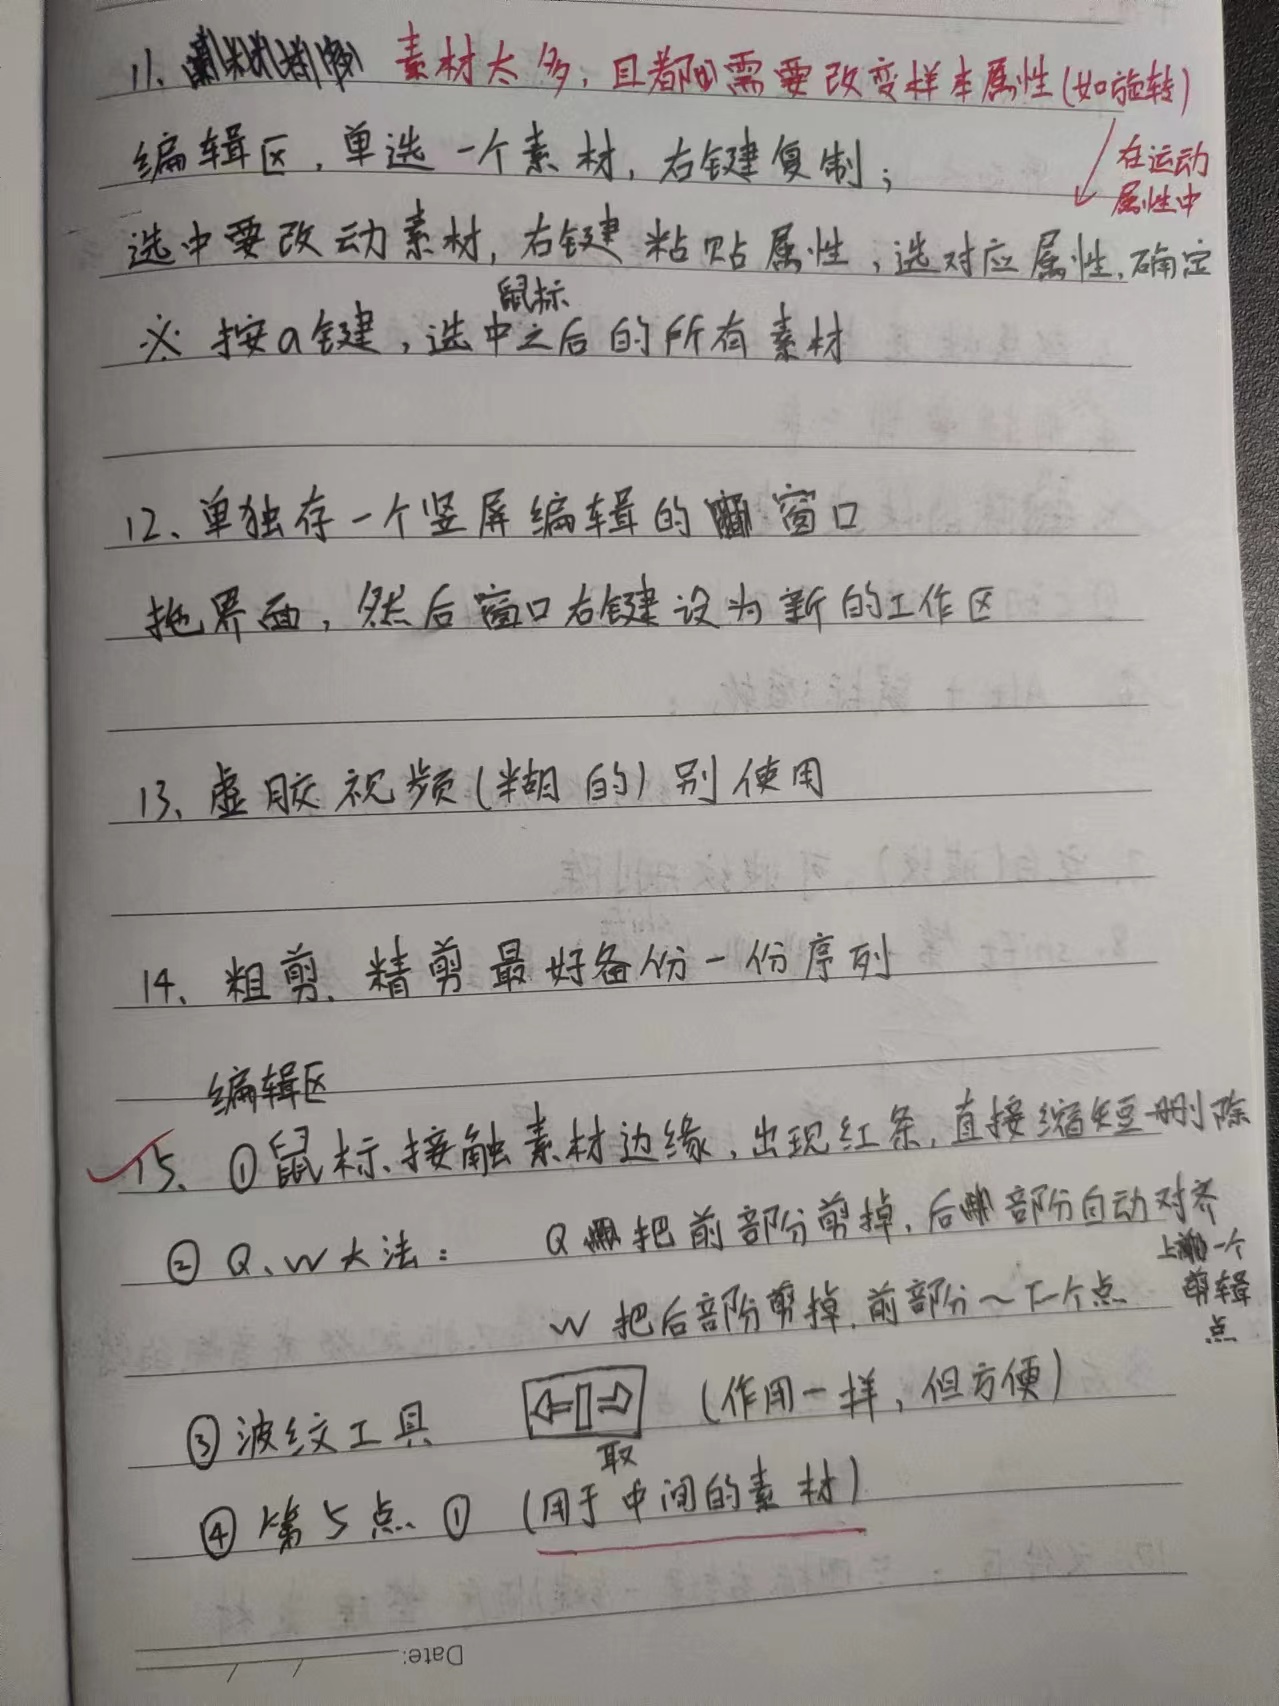 11、素材太多，且都需要改变样本属性(如旋转)
在运动
属性中
编辑区，单选一个素材，右键复制；
选中要改动素材，右键粘贴属性，选对应属性，确定
鼠标
※ 按a键，选中之后的所有素材
12、单独存一个竖屏编辑的窗口
拖界面，然后窗口右键设为新的工作区
13、虚胶视频(糊的)别使用
14、粗剪、精剪最好备份一份序列
编辑区
15、①鼠标接触素材边缘，出现红条，直接缩短删除
② Q、W大法： Q 把前部分剪掉，后部分自动对齐
上一个
剪辑
点
W 把后部分剪掉，前部分~下个点
③波纹工具 (作用一样，但方便)
取
④ 第5点 ① (用于中间的素材)
Date: